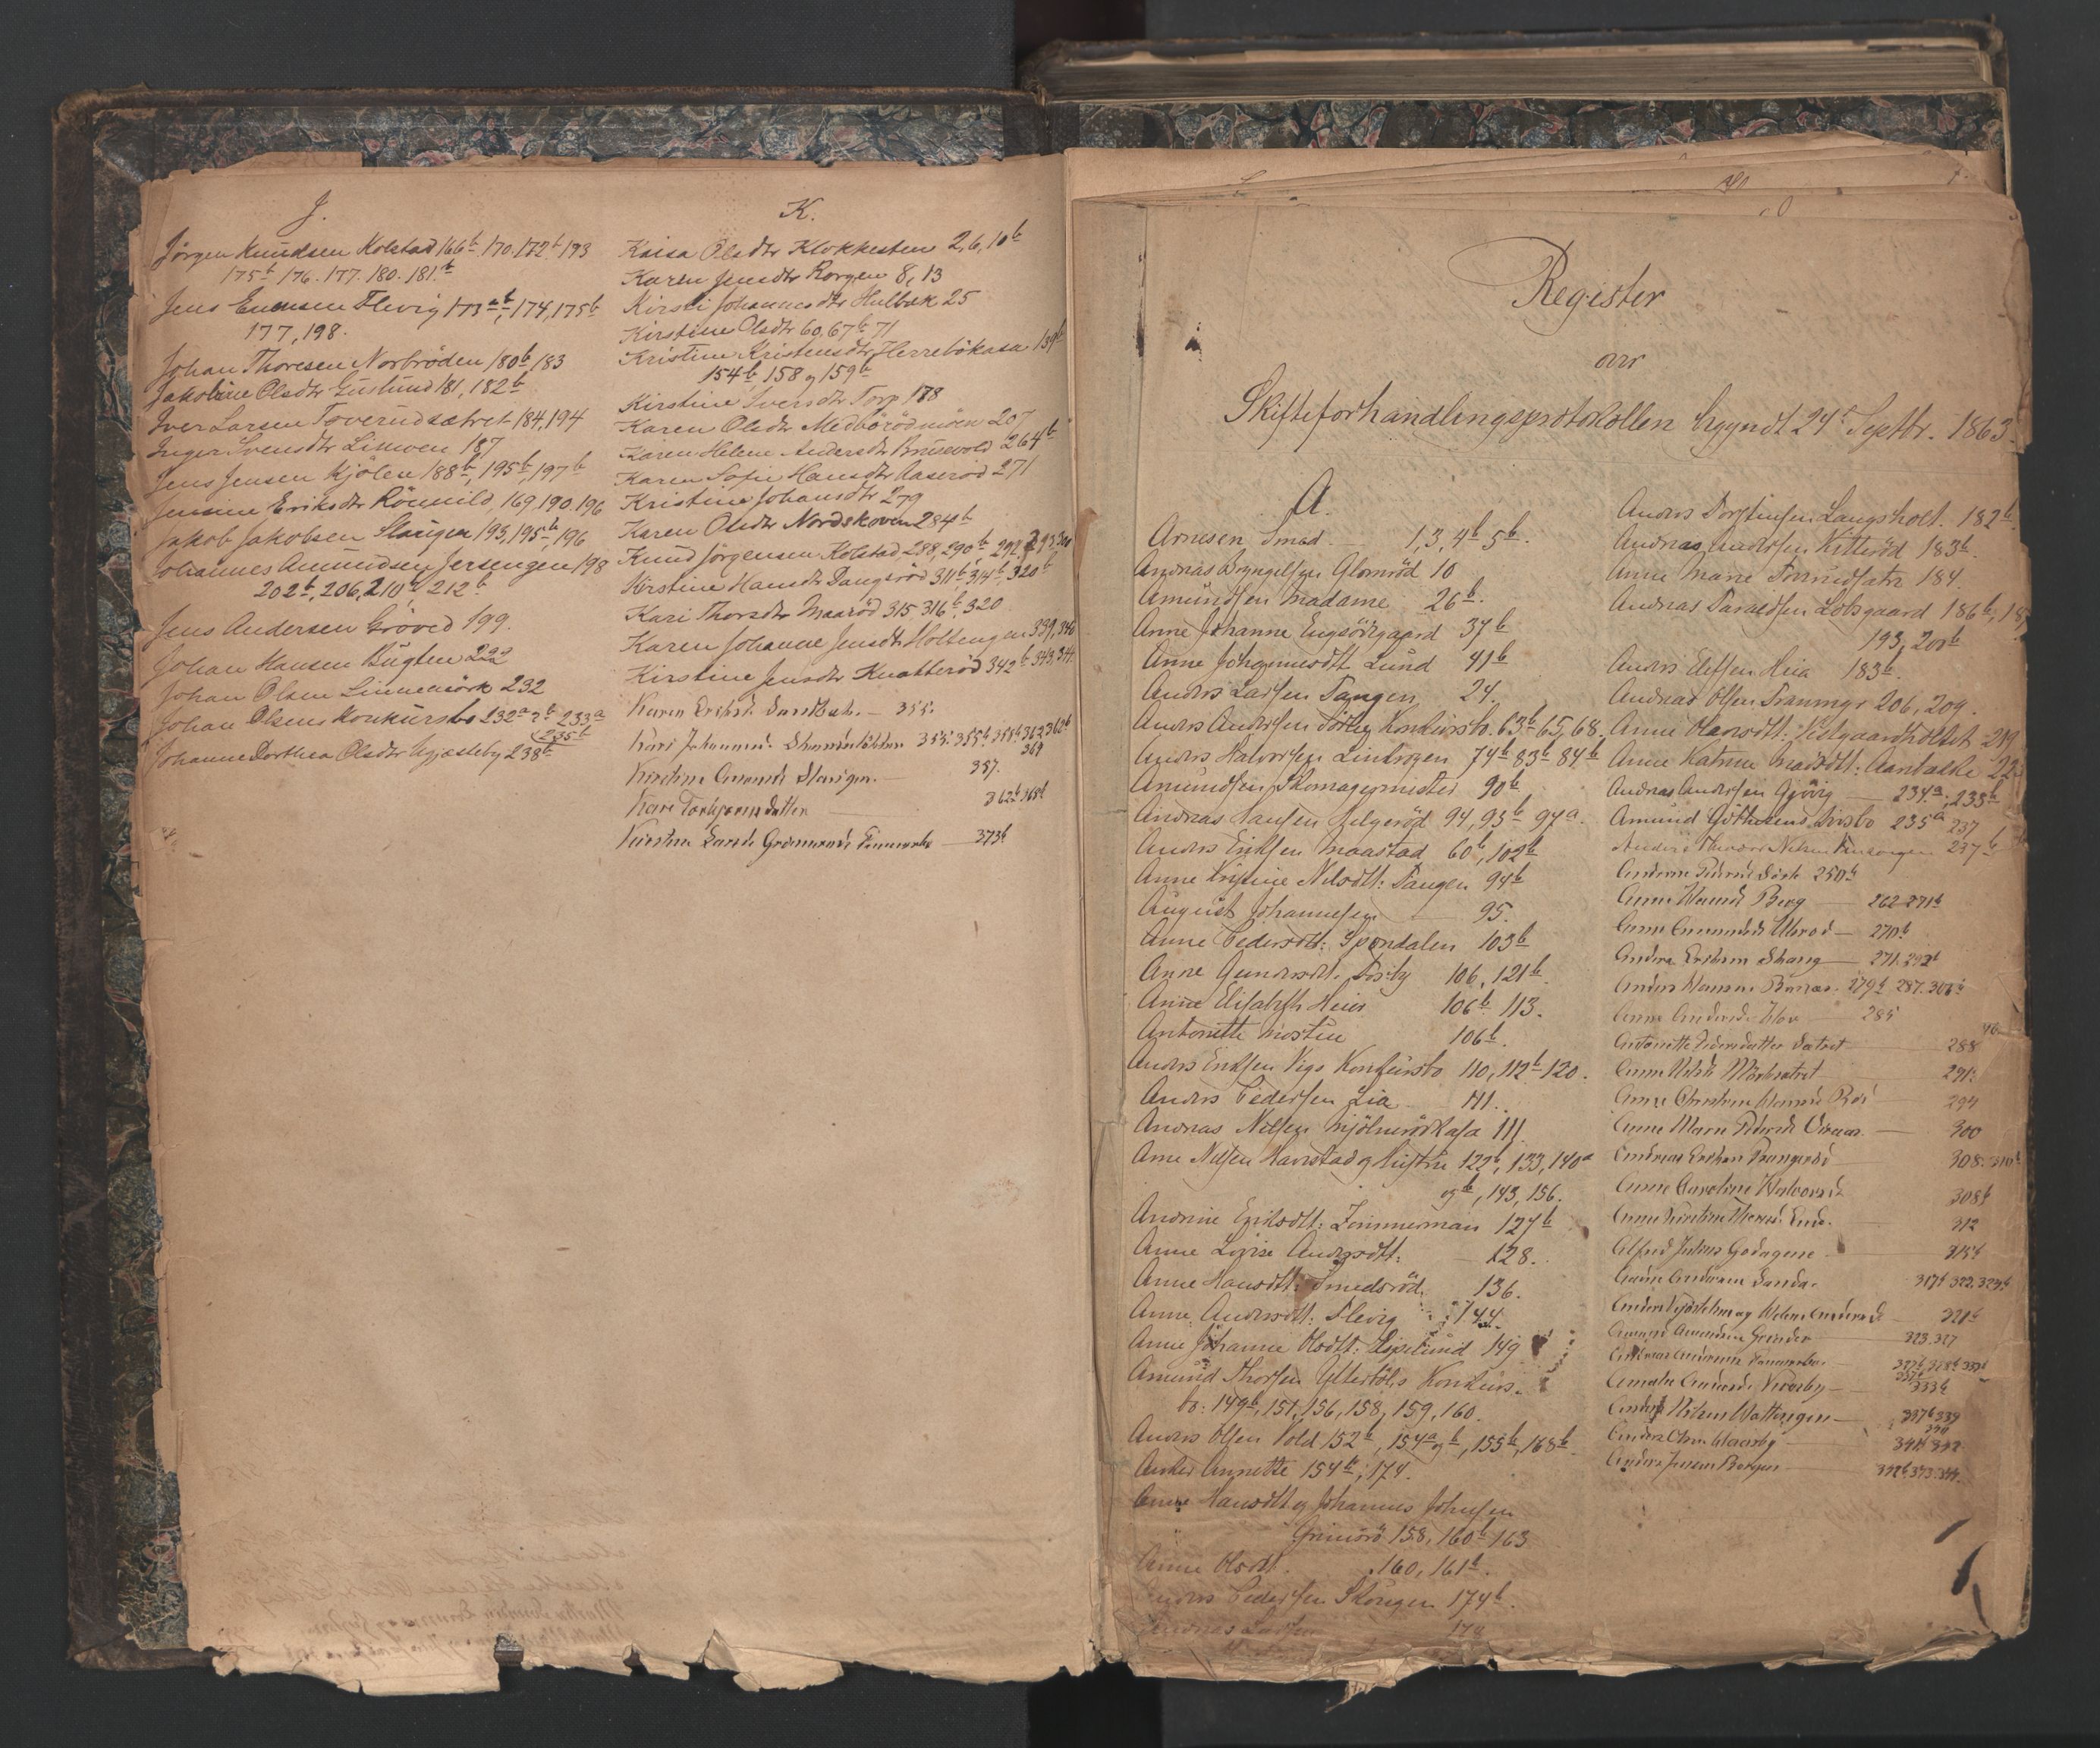 J.
Jörgen Knudsen Kolstad 166b 170. 172b 173
175b 176. 177. 180. 181.b
Jens Evensen Flevig 173ab, 174, 175b
177, 198.
Johan Thoresen Norbröden 180b, 183
Jakobine Olsdtr Guslund 181, 182b
Iver Larsen Toverudsætret 184, 194
Inger Svensdtr Linwen 187
Jens Jensen Kjölen 188b, 195b, 197b
Eriksdtr 169, 190. 196
Jakob Jakobsen Slangen 193, 195b, 196
Johannes Amundsen Jersengen 198
202b, 206, 210b, 212b
Jens Andersen Gröved 199.
Johan Hansen Bugten 222
Johan Olsen Linnemörk 232
Johan Olsens Konkursbo 232a b 233a
235b
Johanne Dorthea Olsdtr 238b
K.
Kaisa Olsdtr Klokkesten 2, 6, 10b
Karen Jensdtr Rorgen 8, 13
Kirsti Johannesdtr Hulbæk 25
Kirstine Olsdtr 60, 67b 71
Kristine Kristensdtr Herrebökasa 139b
154b, 158 og 159b
Kirstine Svensdtr Torp 178
Karen Olsdtr Medbörödmoen 207
Karen Helene Andersdtr Brusevold 264b
Karen Sofie Hansdtr Aaseröd 271
Kristine Johansdtr 279
Karen Olsdtr Nordskoven 284b
Knud Jörgensen Kolstad, 288, 290b
Kirstine Hansdtr Dangeröd 311b, 314b, 320b
Kari Thorsdtr Maaröd 315. 316b. 320
Karen Johanne Jensdtr Holtengen 339, 346
Kirstine Jensdtr Knatteröd 342b 343, 344
Karen Eriksd. Sandbæk. — 355.
Kari Johannesd. 354. 355b 358b 362 362b
364
Kirstine Amundsd. Slangen. — 357.
Kari Torbjörnsdatter — 362b 365b
Kirstine Larsd. — 373b
Register
over
Skifteforhandlingsprotokollen begyndt 24de Septbr. 1863.
A.
Arnesen Smed — 1, 3, 4b 5b.
Andreas Bryngelsen Glomröd 10
Amundsen Madame 26b.
Anne Johanne Engsörgaard 37b
Anne Johannesdtt Lund 41b
Anders Larsen Tangen 24.
Anders Andersen Torby Konkursb. 63b 65, 68.
Anders Halvorsen Lintorgen 74b 83b 84b
Amundsen, Skomagermester 90b
Andreas Hansen Helgeröd 94, 93b 97a.
Anders Eriksen Maastad 60b, 102b
Anne Kristine Nilsdtt: Tangen 94b
August Johannesen — 95.
Anne Pedersdtt: Spondalen 103b
Anne Gundersdtt. Torby 106, 121b.
Anne Elisabeth Heia 106b 113.
Antonette Mostue 106b.
Anders Eriksen Vigs Konkursbo 110, 112b 120.
Anders Pedersen Lia 111.
Andreas Nilsen Mjölnerödkasa 111.
Arne Nilsen Haverstad og Hustru 122b, 133, 140a
og b, 143, 156.
Andrine Eriksdtt: Zimmerman 127b
Anne Lovise Andersdtt: — 128.
Anne Hansdtt: Smedsröd. 136.
Anne Andersdtt: Flevig 144.
Anne Johanne Olsdtt: 149
Amund Thorsen Yttertöls Konkurs-
bo: 149b, 151, 156, 158, 159, 160.
Anders Olsen Vold 152b, 154a og b, 155b, 168b.
Anker Annette 154b, 174.
Anne Hansdtt og Johannes Johnsen
Grimsrö 158, 160b 163
Anne Olsdtt. 160, 161b.
Anders Pedersen Skougen 174b.
Andreas Larsen 178
Anders Torstensen Langsholt. 182b.
Andreas Andersen Kitteröd 183b.
Anne Marie Torrudsætr 184.
Andreas Taraldsen Lobsgaard 186b, 18
193, 200b
Anders Elefsen Heia 183b.
Andreas Olsen Tranmyr 206, 209.
Anne Hansdtt: 219
Anne Katrine Madsdtt: 22
Andreas Andersen Gjörrg — 234a, 235b
Amund Göthesens Arvisbo 235a 237
Anders Theodor Nilsen 237b
Anderine Pedersd. 250b
Anne Hansd. Berg — 262 271b
Anne Amundsd. Ulerød — 270b
Anders Eriksen Skaug — 271. 292b
Anders Hansen 279b 287. 303b
Anne Andersd. — 285
Antonette Pedersdatter Sætret 288
Anne Nilsd. Mörksætret 291.
Anne Christine Hansd. Röd 294
Anne Marie Pedersd. — 300
Andreas Eriksen Dangeröd 308. 310b
Anne Caroline Halvorsd. 308b
Anne Kirstine Thoresd. 312
Alfred Julius Godagene 315b
Andersen Sanda. 317b 322. 324b
Anders og Helene Andersd. 321b
Amund Amundsen Grinder 323. 327
Andreas Andersen 327b, 328b 332b
332b
Amalie Amundsd. Viverby — 333b
Nilsen Mattingen — 337b 339
340
Anders Olsen — 341b 342
Anders Jensen Borgen — 342b 343. 344.